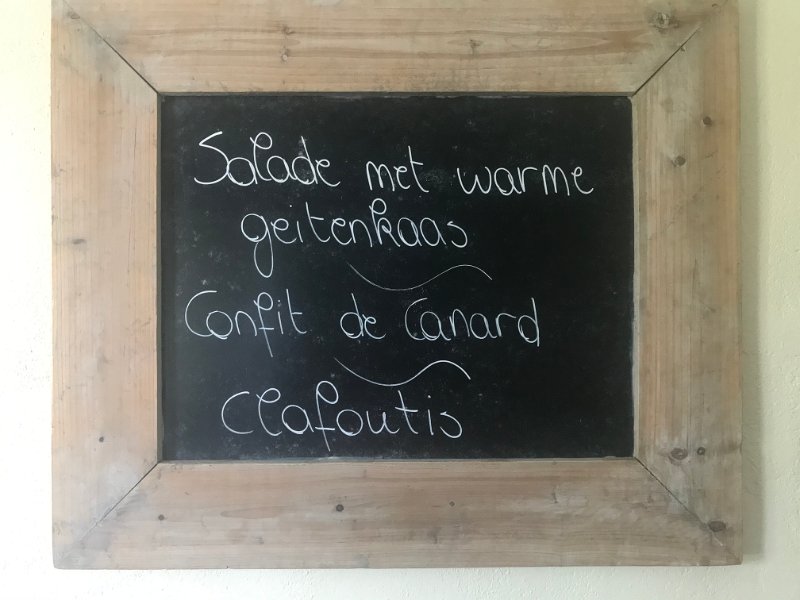 Salade met warme
geitenkaas
Confit de Canard
Clafoutis